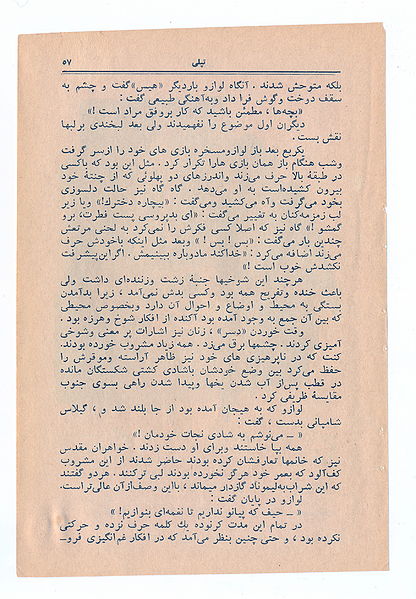 تپلی ۵۷
بلکه متوحش شدند . آنگاه لوازو باردیگر «هیس» گفت و چشم به
سقف دوخت وگوش فرا داد وبه‌آهنگی طبیعی گفت :
«بچه‌ها ، مطمئن باشید که کار بروفق مراد است !»
دیگران اول موضوع را نفهمیدند ولی بعد لبخندی برلبها
نقش بست .
یکربع بعد باز لوازومسخره بازی های خود را ازسر گرفت
وشب هنگام باز همان بازی هارا تکرار کرد . مثل این بود که باکسی
در طبقهٔ بالا حرف می‌زند واندرزهای دو پهلوئی که از چنتهٔ خود
بیرون کشیده‌است به او می‌دهد . گاه گاه نیز حالت دلسوزی
بخود می‌گرفت وآه می‌کشید ومی‌گفت : «بیچاره دخترك!» ویا زیر
لب زمزمه‌کنان به تغییر می‌گفت : «ای بدپروسی پست فطرت، برو
گمشو !» گاه نیز که اصلا کسی فکرش را نمی‌کرد به لحنی مرتعش
چندین بار می‌گفت : «بس ! بس ! » وبعد مثل اینکه باخودش حرف
می‌زند اضافه می‌کرد : «خداکند مادوباره ببینیمش . اگراین‌پیشرفت
نکشدش خوب است !»
هرچند این شوخیها جنبهٔ زشت وزننده‌ای داشت ولی
باعث خنده وتفریح همه بود وکسی بدش نمی‌آمد ، زیرا بدآمدن
بستگی به محیط و اوضاع و احوال آن دارد وبخصوص محیطی
که بین آن جمع به وجود آمده بود آکنده از افکار شوخ وهرزه بود .
وقت خوردن «دسر» ، زنان نیز اشارات پر معنی وشوخی
آمیزی کردند . چشمها برق می‌زد . همه زیاد مشروب خورده بودند.
کنت که در ناپرهیزی های خود نیز ظاهر آراسته وموقرش را
حفظ می‌کرد بین وضع خودشان باشادی کشتی شکستگان مانده
در قطب پس‌از آب شدن یخها وپیدا شدن راهی بسوی جنوب
مقایسهٔ ظریفی کرد .
لوازو که به هیجان آمده بود از جا بلند شد و ، گیلاس
شامپانی بدست ، گفت :
« ــ می‌نوشم به شادی نجات خودمان !»
همه بپا خاستند وبرای او دست زدند . خواهران مقدس
نیز که خانمها تعارفشان کرده بودند حاضر شدند از این مشروب
کف‌آلود که بعمر خود هرگز نخورده بودند لبی ترکنند . هردو گفتند
که این شراب‌به‌لیموناد گازدار میماند ، بااین وصف‌ازآن عالی‌تراست.
لوازو در پایان گفت :
« ــ حیف که پیانو نداریم تا نغمه‌ای بنوازیم!»
در تمام این مدت کرنوده یك کلمه حرف نزده و حرکتی
نکرده بود ، و حتی چنین بنظر می‌آمد که در افکار غم‌انگیزی فرو-